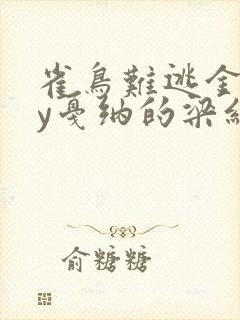 雀鳥難逃全
y戛纳的梁
俞糖糖